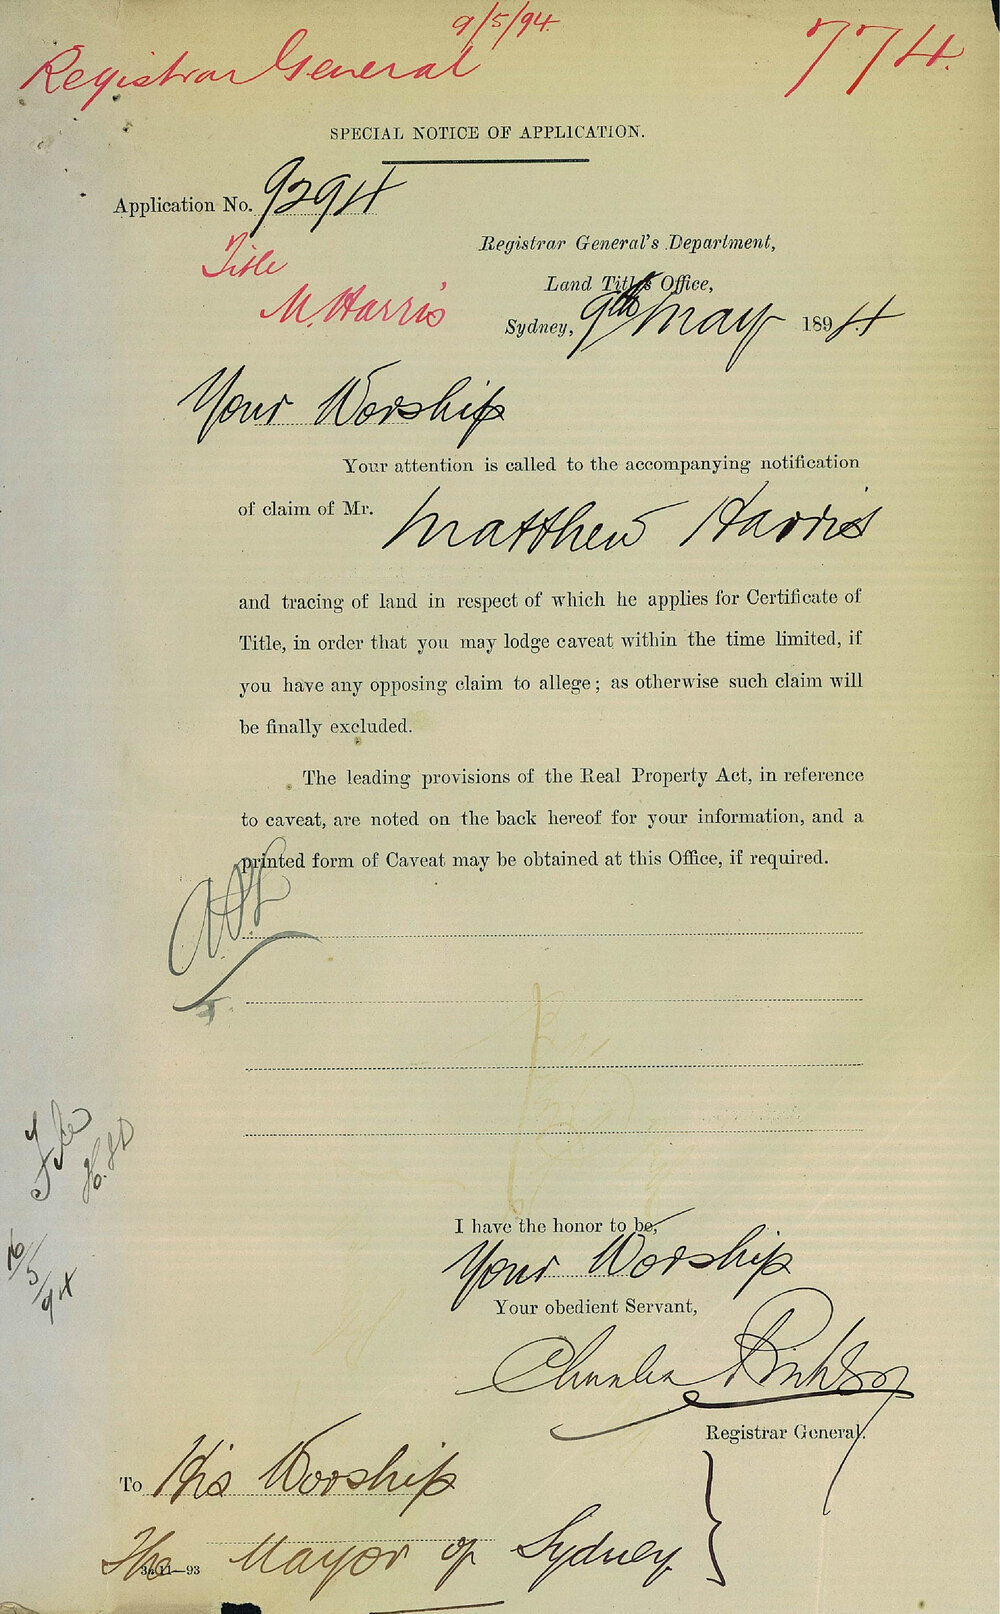 9/5/94
Registrar General
774.
SPECIAL NOTICE OF APPLICATION.
Application No. 9294
Title
M. Harris
Registrar General's Department,
Land Titles Office,
Sydney, 9th May 1894
Your Worship
Your attention is called to the accompanying notification
of claim of Mr. Matthew Harris
and tracing of land in respect of which he applies for Certificate of
Title, in order that you may lodge caveat within the time limited, if
you have any opposing claim to allege; as otherwise such claim will
be finally excluded.
The leading provisions of the Real Property Act, in reference
to caveat, are noted on the back hereof for your information, and a
printed form of Caveat may be obtained at this Office, if required.
File
16/5/94
I have the honor to be,
Your Worship
Your obedient Servant,
Charles
Registrar General.
To His Worship
The Mayor of Sydney
11—93